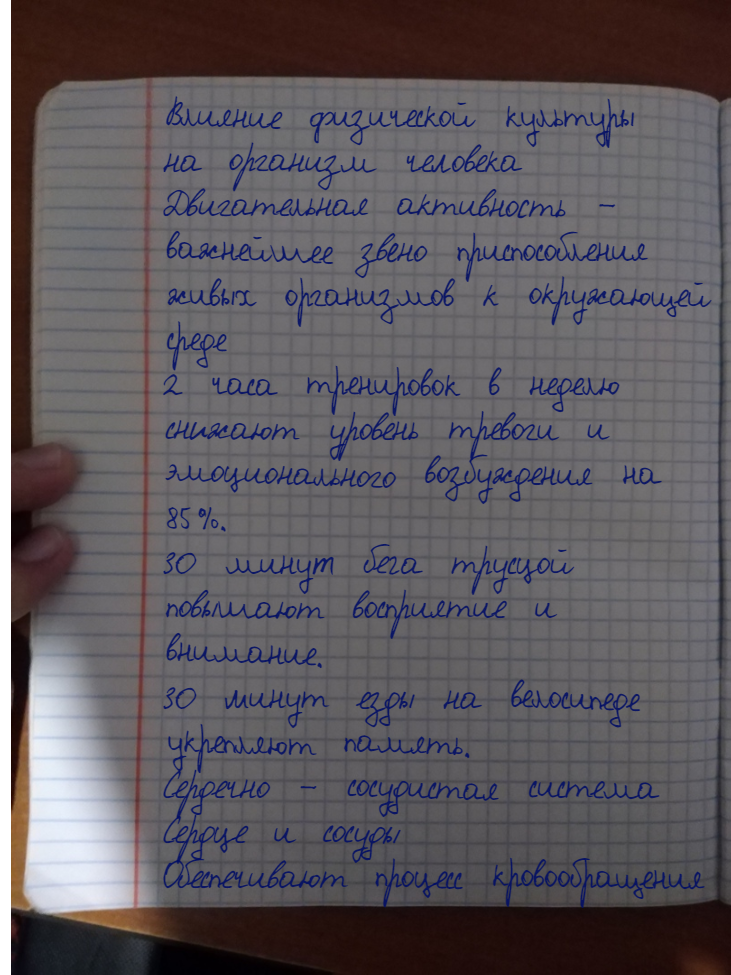 Влияние физической культуры
на организм человека
Двигательная активность –
важнейшее звено приспособления
живых организмов к окружающей
среде
2 часа тренировок в неделю
снижают уровень тревоги и
эмоционального возбуждения на
85%.
30 минут бега трусцой
повышают восприятие и
внимание.
30 минут езды на велосипеде
укрепляют память.
Сердечно – сосудистая система
Сердце и сосуды
Обеспечивают процесс кровообращения